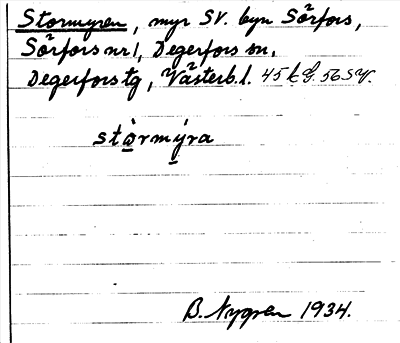 Stormyren, myr SV. byn Sörfors,
Sörfors nr 1, Degerfors sn,
Degerfors tg, Västerb. l. 45 k G. 56 SV.
stàrmýra
B. Nygren 1934.